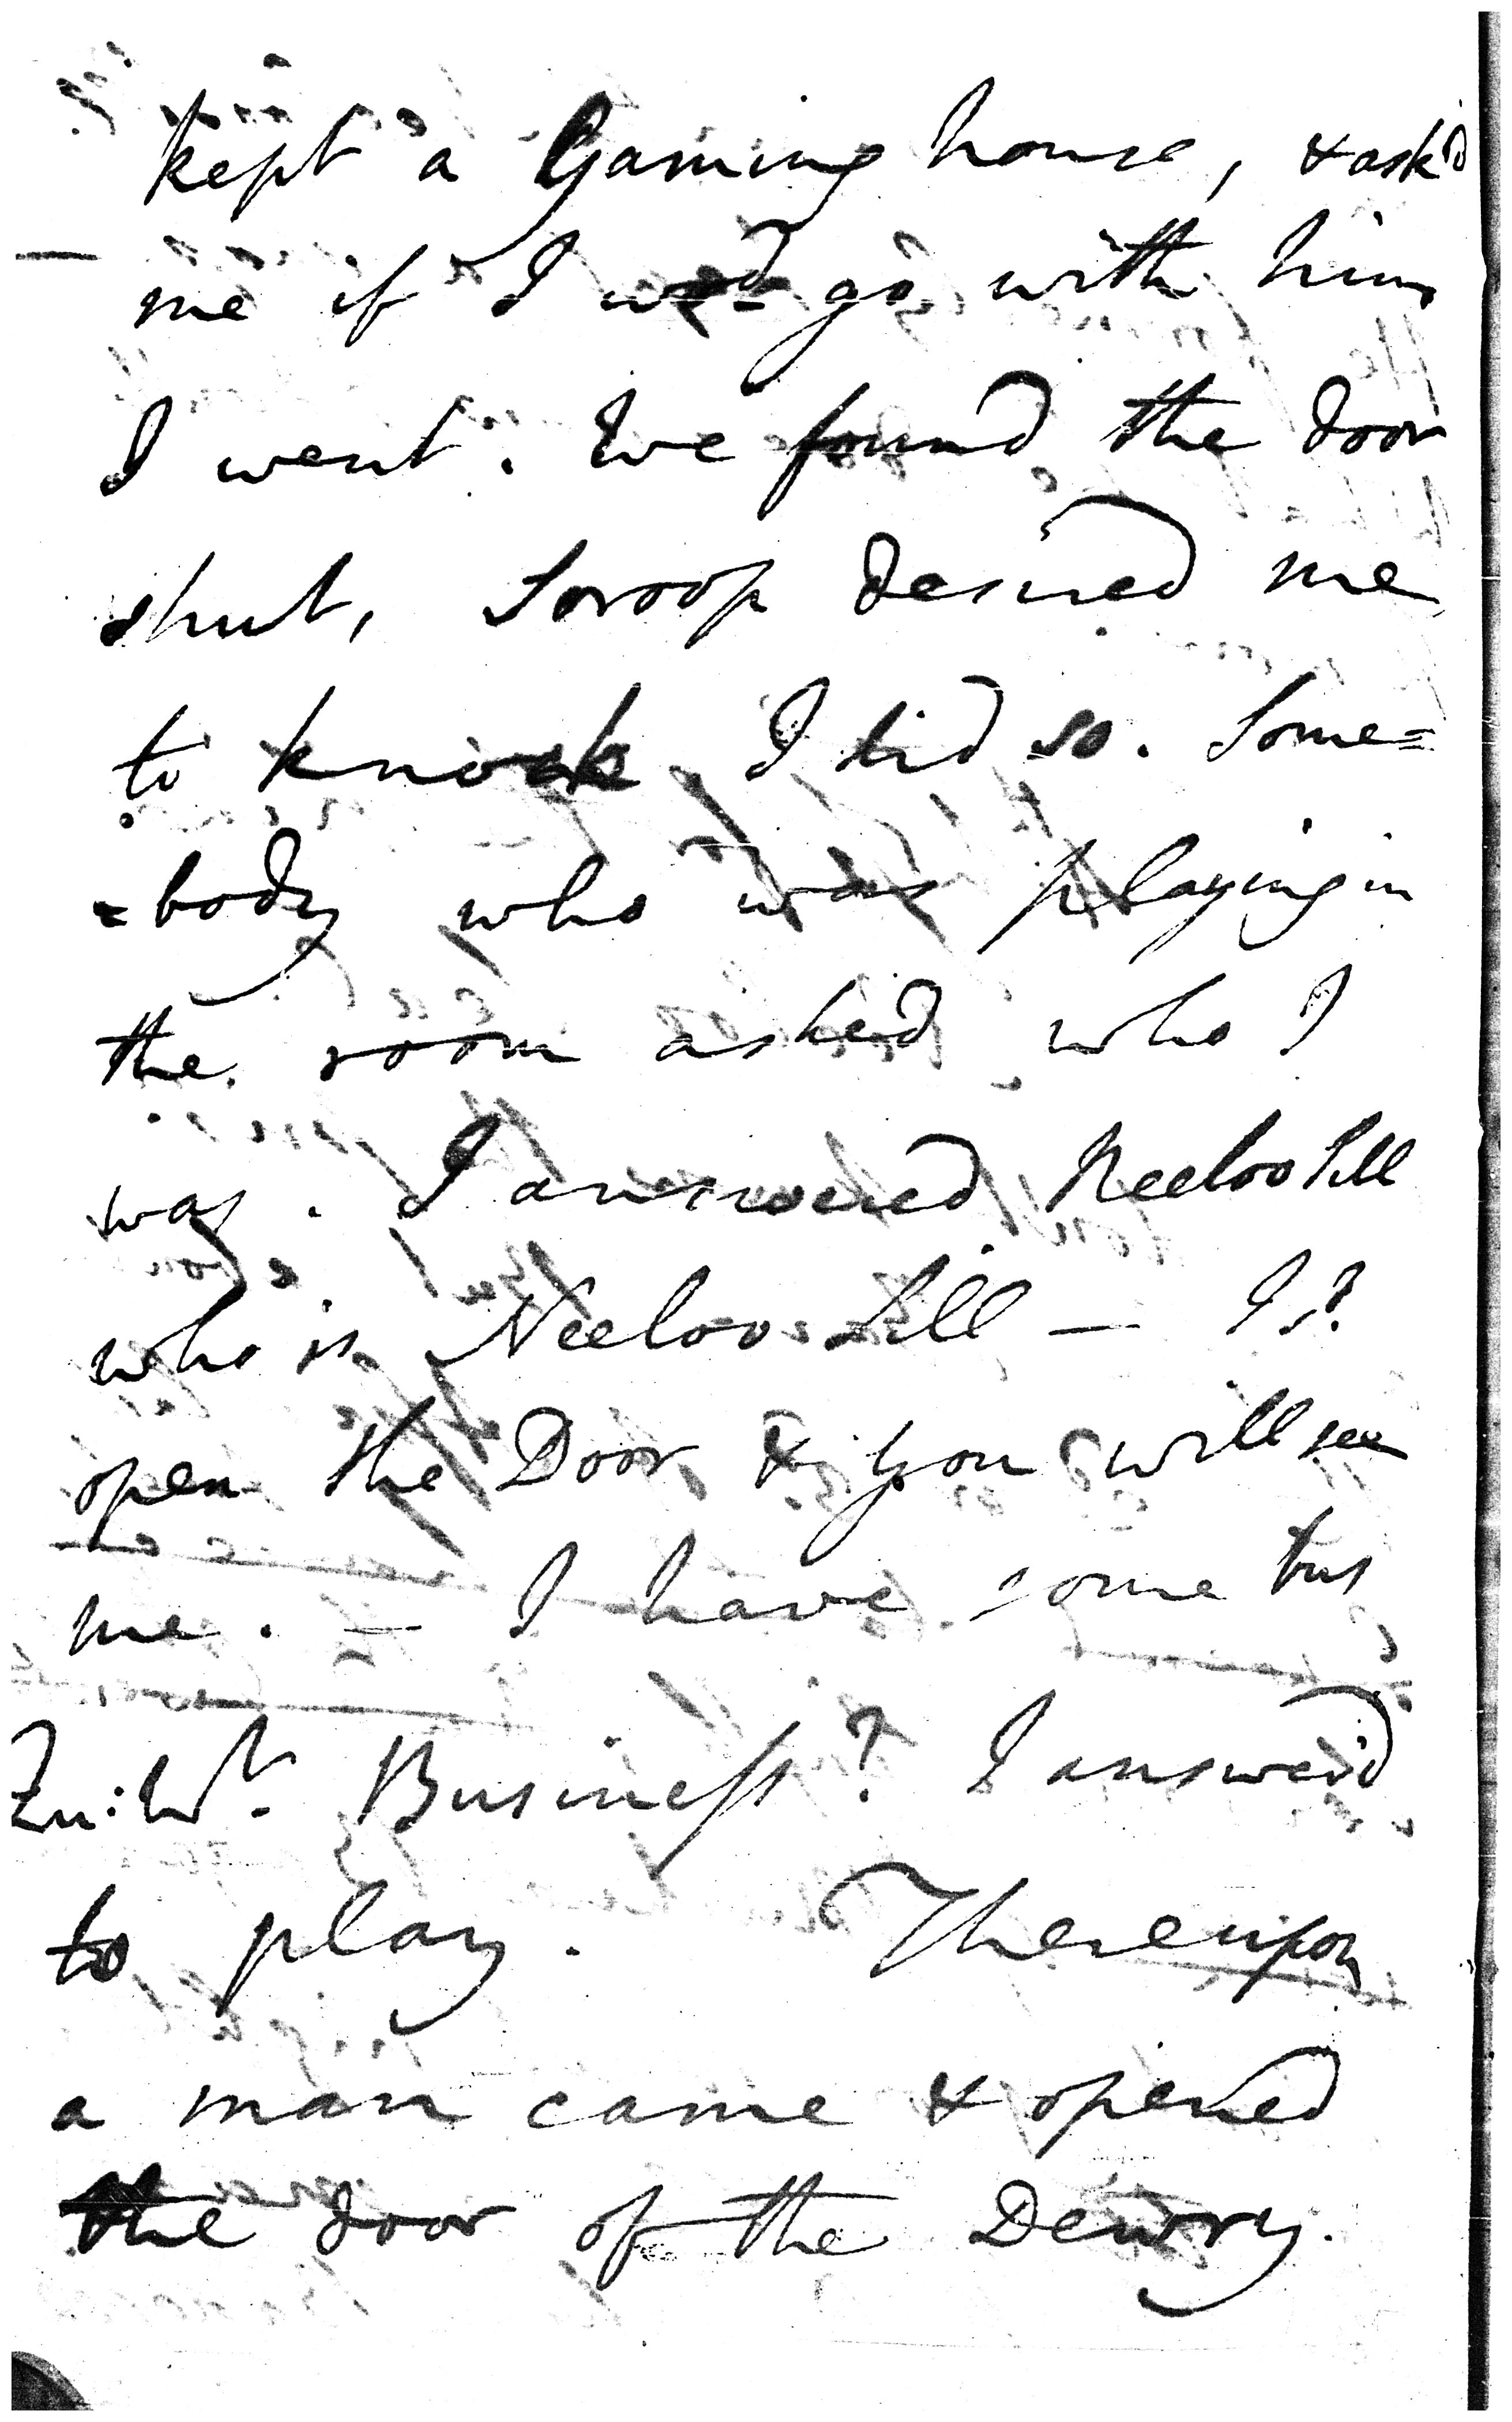 kept a Gaming house, & ask'd
me if I wod go with him
I went. We found the door
shut, Soroop desired me
to knock I did so. Some=
=body who was playing in
the room asked who I
was. I answered Neeloo Sill
who is Neeloo Sill — I s?
open the Door & you will see
me. — I have some bus
Qu: Wt. Business? I answer'd
to play. Thereupon
a man came & opened
the door of the Dewry.